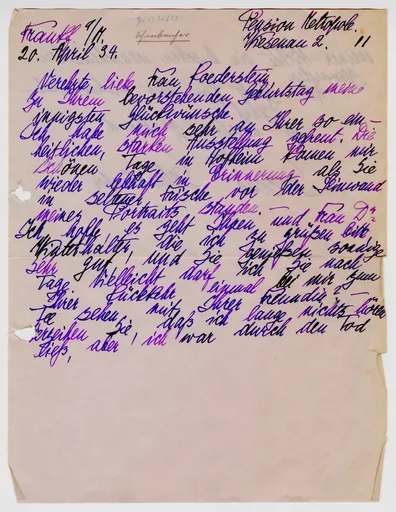 Frankf. a/M. Pension Metropole.
20. April 34. Wiesenau 2. II
Verehrte, liebe Frau Roederstein,
zu Ihrem bevorstehenden Geburtstag meine
innigsten Glückwünsche.
Ich habe mich sehr an Ihrer so ein-
heitlichen, starken Ausstellung gefreut. Die
schönen Tage in Hofheim kamen mir
wieder lebhaft in Erinnerung als Sie
in seltener Frische vor der Leinwand
meines Portraits standen. – Und Frau Dr.
Ich hoffe es geht Ihnen
Winterhalter, die ich zu grüßen bitte
sehr gut, und Sie genießen sonnige
Tage. Vielleicht darf ich Sie nach
Ihrer Rückkehr einmal bei mir zum
Tee sehen, mit Ihrer Freundin?
Verzeihen Sie, daß ich lange nichts hören
ließ, aber ich war durch den Tod